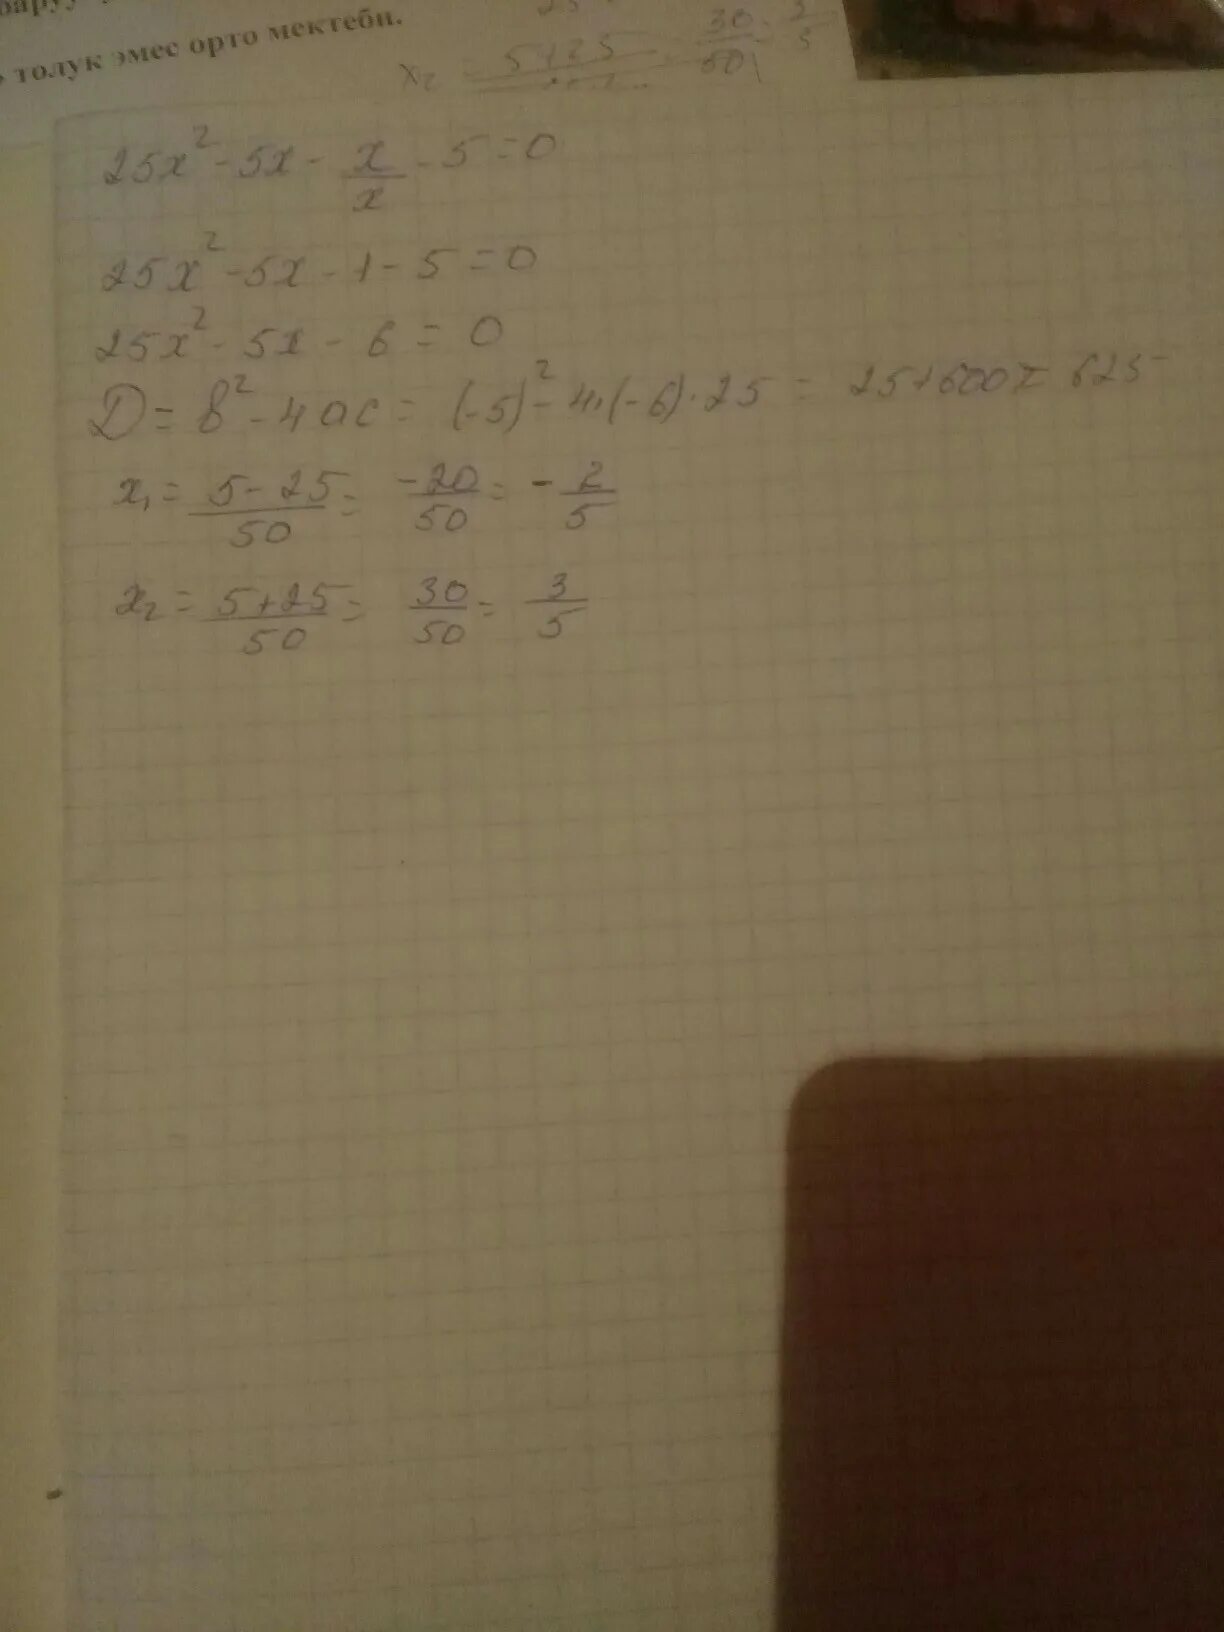 толук эмес орто мектеби.
x₂ = 5+25 / 30/50
25x² - 5x - x/x - 5 = 0
25x² - 5x - 1 - 5 = 0
25x² - 5x - 6 = 0
D = b² - 4ac = (-5)² - 4·(-6)·25 = 25+600 = 625
x₁ = (5-25)/50 = -20/50 = -2/5
x₂ = (5+25)/50 = 30/50 = 3/5